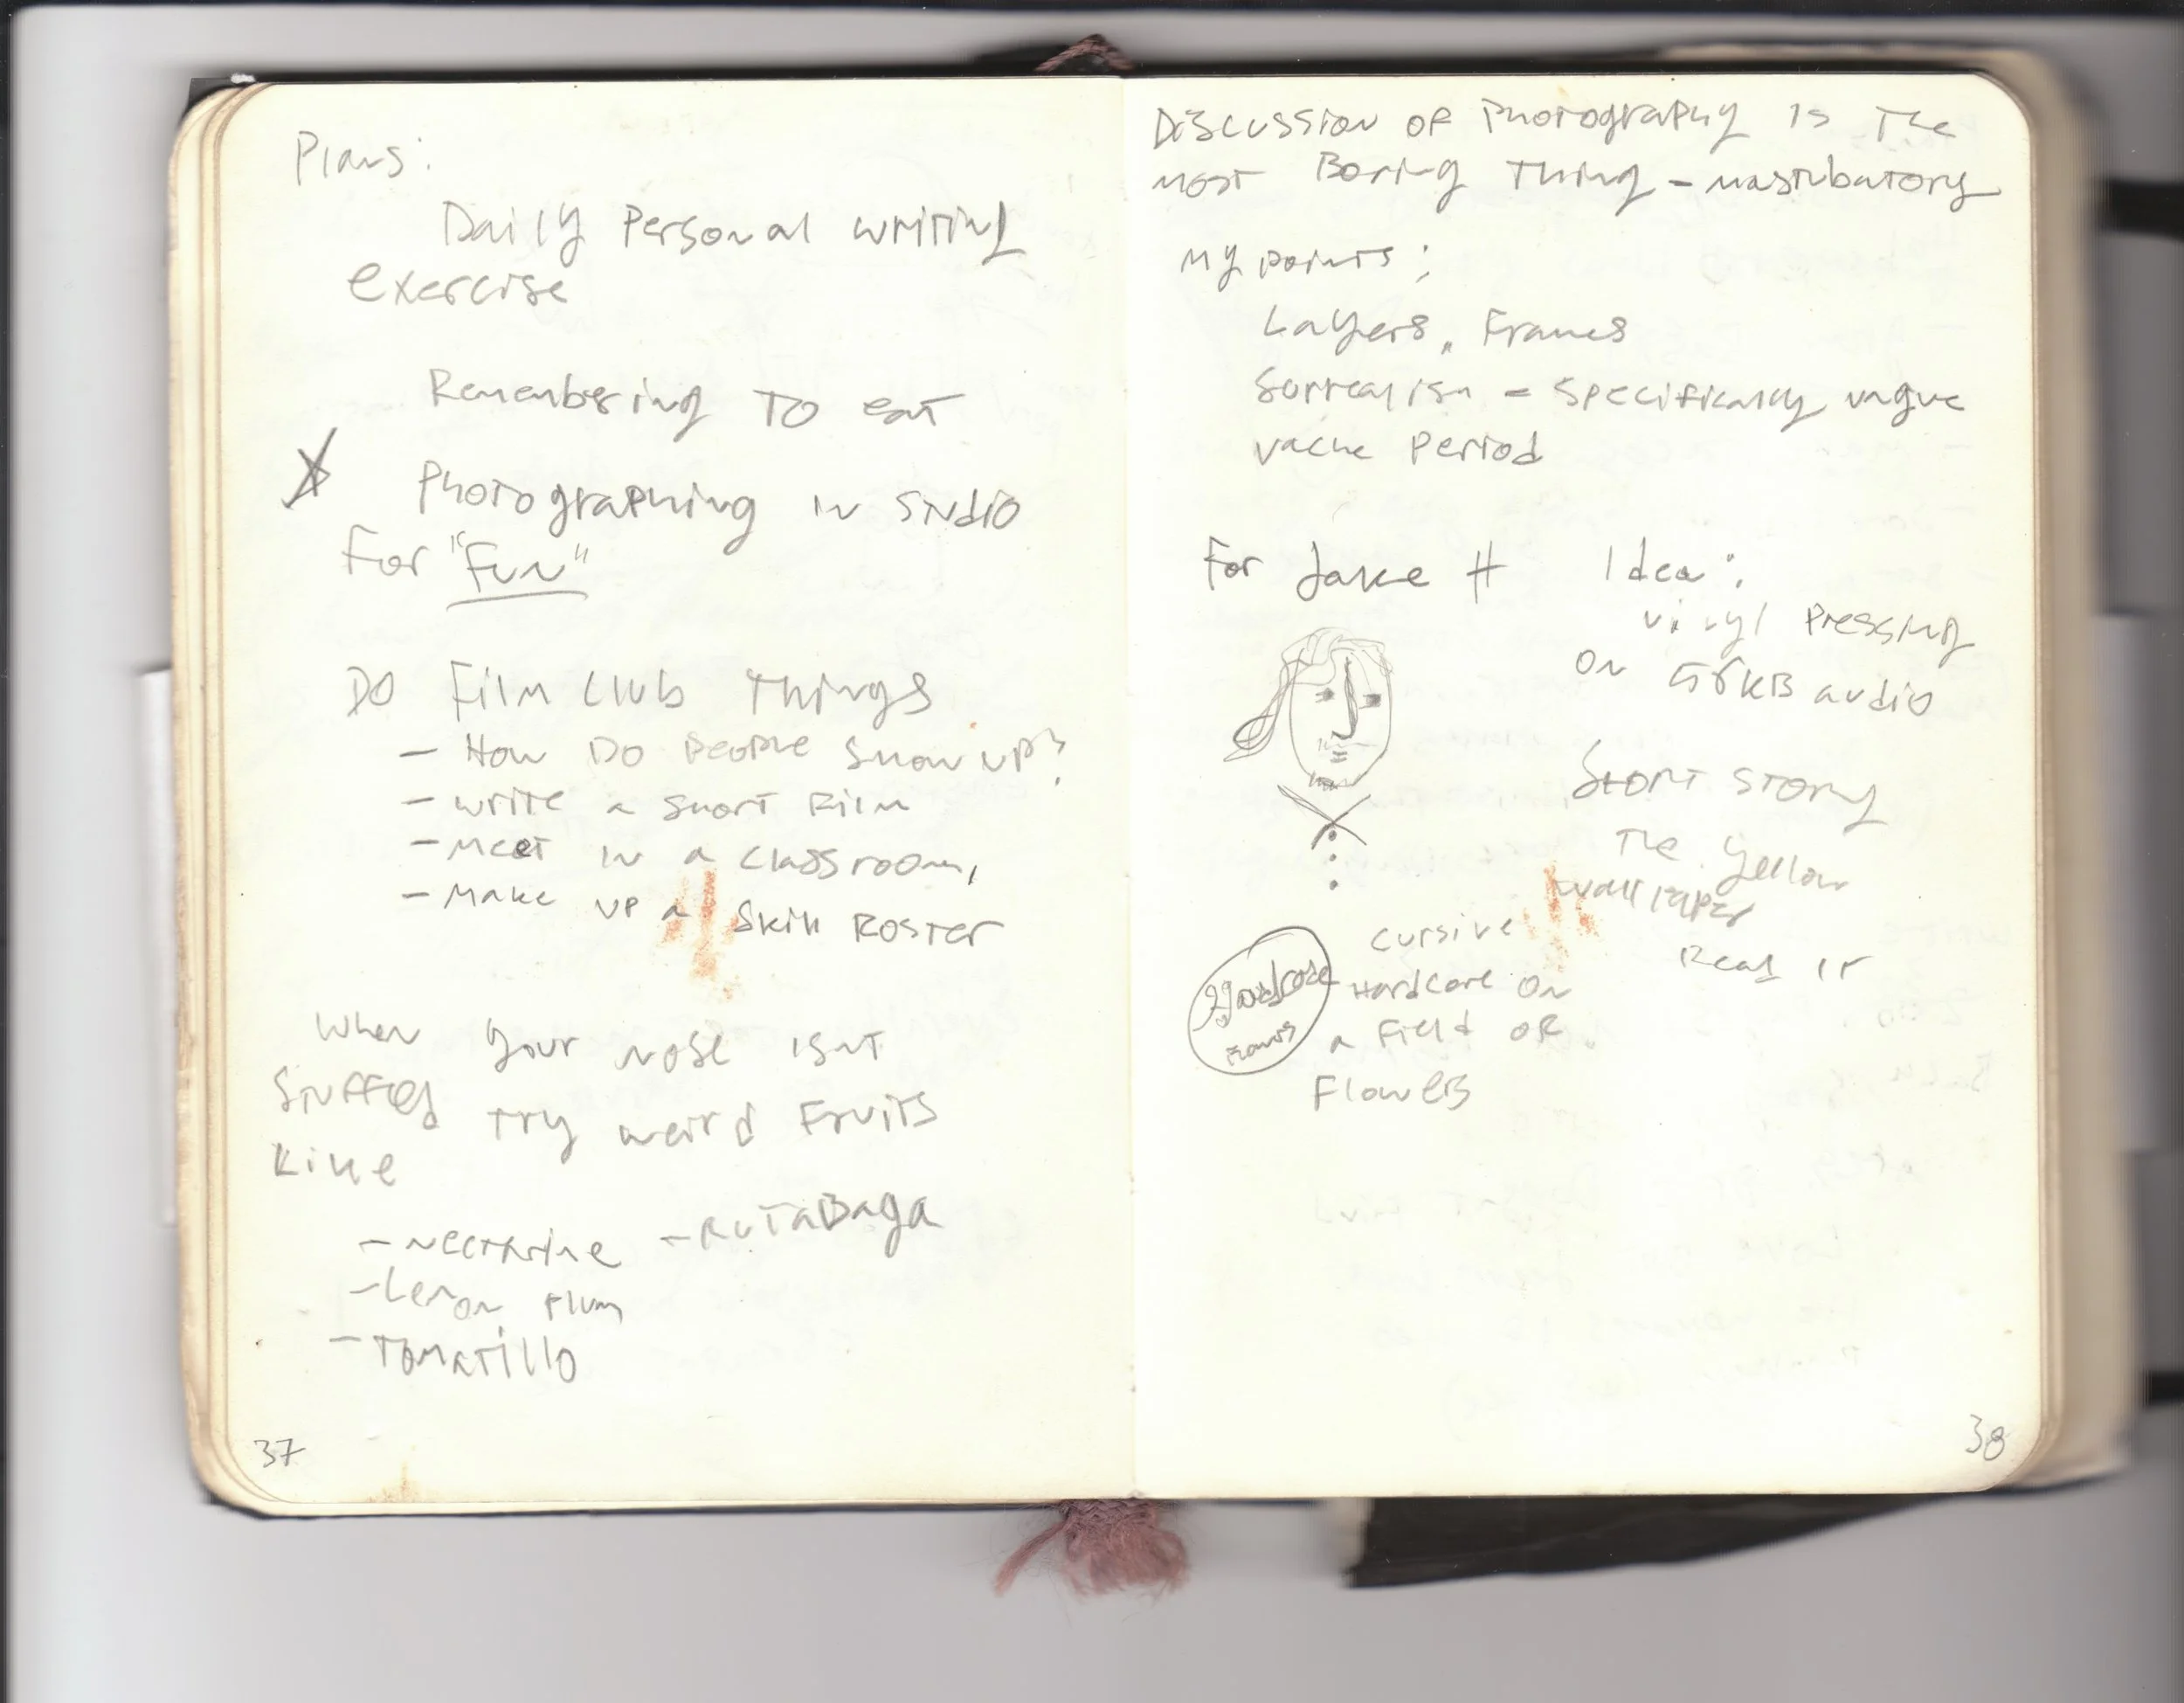 Plans:
Daily Personal writing
exercise
Remembering to eat
Photographing in studio
For "Fun"
Do Film Club Things
- How Do People show up?
- write a short Film
- meet in a classroom,
- make up a skill Roster
When your nose isnt
stuffed try weird Fruits
Like
- nectarine - RutaBaga
- Lemon Plum
- Tomatillo
37
Discussion of Photography is The
most Boring Thing - masturbatory
My points:
Layers, Frames
Surrealism = specifically vague
vache Period
For Jake H
Idea:
vinyl Pressing
on 56KB audio
Short story
The Yellow
wallpaper
Read it
cursive
Hardcore on
a Field of
Flowers
Hardcore
38